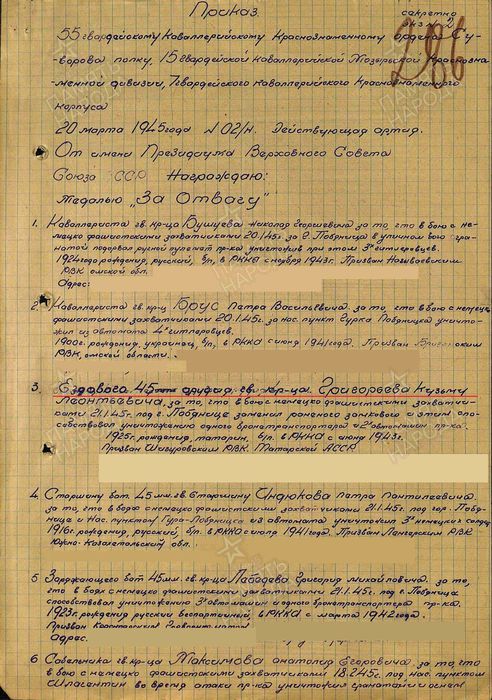 Приказ
секретно
экз. 2
286
55 гвардейскому Кавалерийскому Краснознаменному ордена Су-
ворова полку, 15 гвардейской Кавалерийской Мозырьской Краснозна-
менной дивизии, 7 гвардейского Кавалерийского Краснознаменного
корпуса
20 марта 1945 года №02/н. Действующая армия.
От имени Президиума Верховного Совета
Союза ССР Награждаю:
Медалью "За Отвагу"
1. Кавалериста гв. кр-ца Бушуева Николая Георгиевича за то, что в бою с не-
мецко фашистскими захватчиками 20.1.45г. за г. Лобдница в уличном бою гра-
натой подорвал ручной пулемет пр-ка уничтожив при этом 3х гитлеровцев.
1924 года рождения, русский, б/п, в РККА с ноября 1943г. Призван Называевским
РВК омской обл.
Адрес:
2. Кавалериста гв. кр-ца Брус Петра Васильевича за то, что в бою с немецко
фашистскими захватчиками 20.1.45г. за нас. пункт Гурка Лобдница уничто-
жил из автомата 4х гитлеровцев.
1900г. рождения, украинец, б/п, в РККА с июня 1941 года. Призван
РВК, омской области.
3. Ездового 45 мм орудия, гв. кр-ца. Григорьева Кузьму
Леонтьевича, за то, что в бою с немецко фашистскими захватчи-
ками 21.1.45г. под г. Лобднице заменил раненого замкового и этим спо-
собствовал уничтожению одного бронетранспортера и 2х автомашин пр-ка.
1925г. рождения, татарин, б/п. в РККА с июня 1943г.
Призван Шугуровским РВК. Татарской АССР.
4. Старшину бат. 45 мм. гв. Старшину Индюкова Петра Пантилеевича.
за то, что в бою с немецко фашистскими захватчиками 21.1.45г. под гор. Лобд-
нице и Нас. пунктом Гура-Лобдница из автомата уничтожил 3х немецких солда
1916г. рождения, русский, б/п. в РККА с июня 1941 года. Призван Ленгерским РВК
Южно-Казахстанской обл.
5 Заряжающего бат 45 мм. гв. кр-ца Лебедева Григория Михайловича. за то,
что в боях с немецко фашистскими захватчиками 21.1.45г. под г. Лобдница
способствовал уничтожению 3х автомашин и одного бронетранспортера пр-ка.
1923г. рождения русский беспартийный, в РККА с марта 1942 года.
Призван
адрес.
6 Сабельника гв. кр-ца Максимова Анатолия Егоровича. за то, что
в бою с немецко фашистскими захватчиками 18.2.45г. под нас. пунктом
во время атаки пр-ка уничтожил гранатами